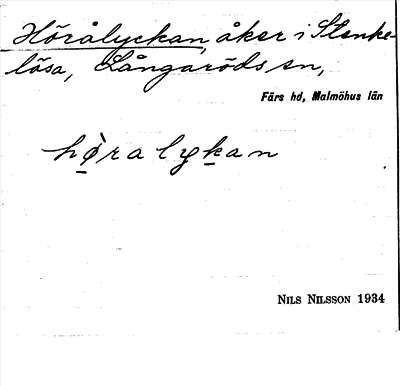 Höralyckan, åker i Stenke-
lösa, Långaröds sn,
Färs hd, Malmöhus län
hø̠̀ralyk̠an
NILS NILSSON 1934